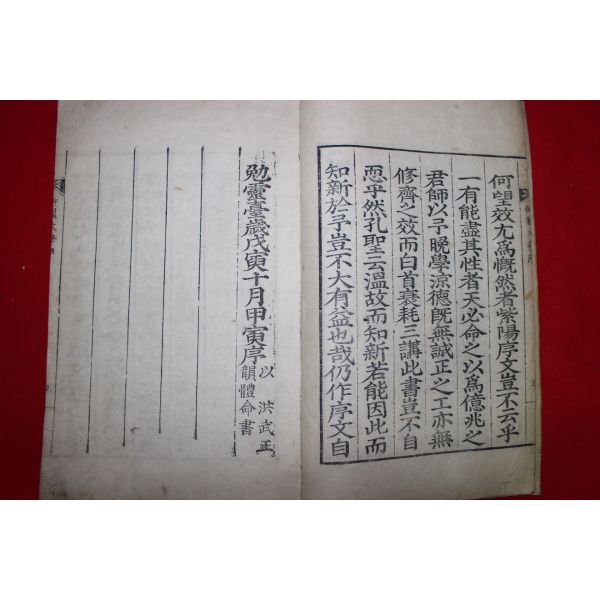 何望效尤爲慨然者紫陽序文豈不云乎
一有能盡其性者天必命之以爲億兆之
君師以予晩學涼德旣無誠正之工亦無
修齊之效而白首衰耗三講此書豈不自
恧乎然孔聖云溫故而知新若能因此而
知新於予豈不大有益也哉仍作序文自
勉靈臺歲戊寅十月甲寅序
以洪武正
韻體命書